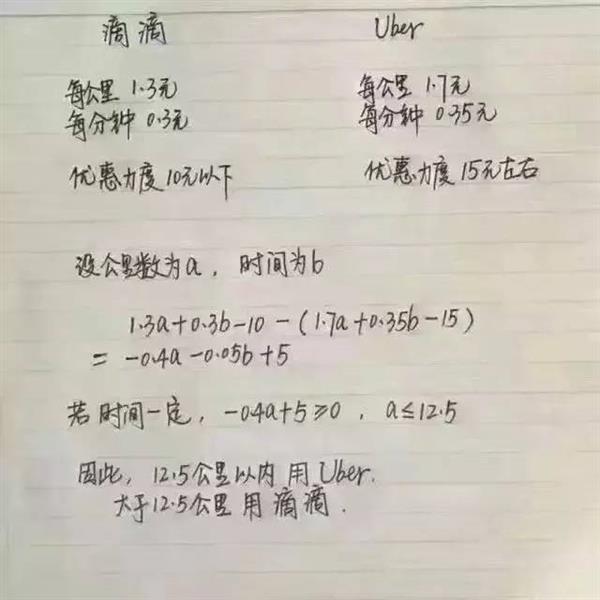 滴滴 Uber
每公里 1.3元 每公里 1.7元
每分钟 0.3元 每分钟 0.35元
优惠力度 10元以下 优惠力度 15元左右
设公里数为a, 时间为b
1.3a+0.3b-10-(1.7a+0.35b-15)
= -0.4a-0.05b+5
若时间一定, -0.4a+5≥0, a≤12.5
因此, 12.5公里以内用Uber.
大于12.5公里用滴滴.